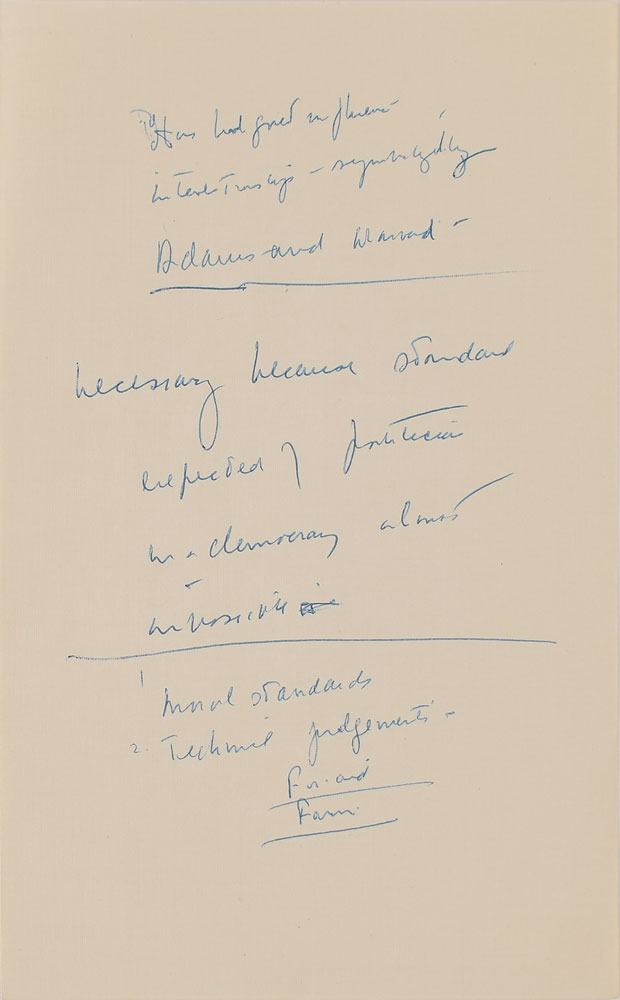 Has had good influence
internship –
Adams and –
necessary because standard
expected of politician
in a democracy almost
impossible
1 Moral standards
2. Technical judgements –
For. aid
Farm